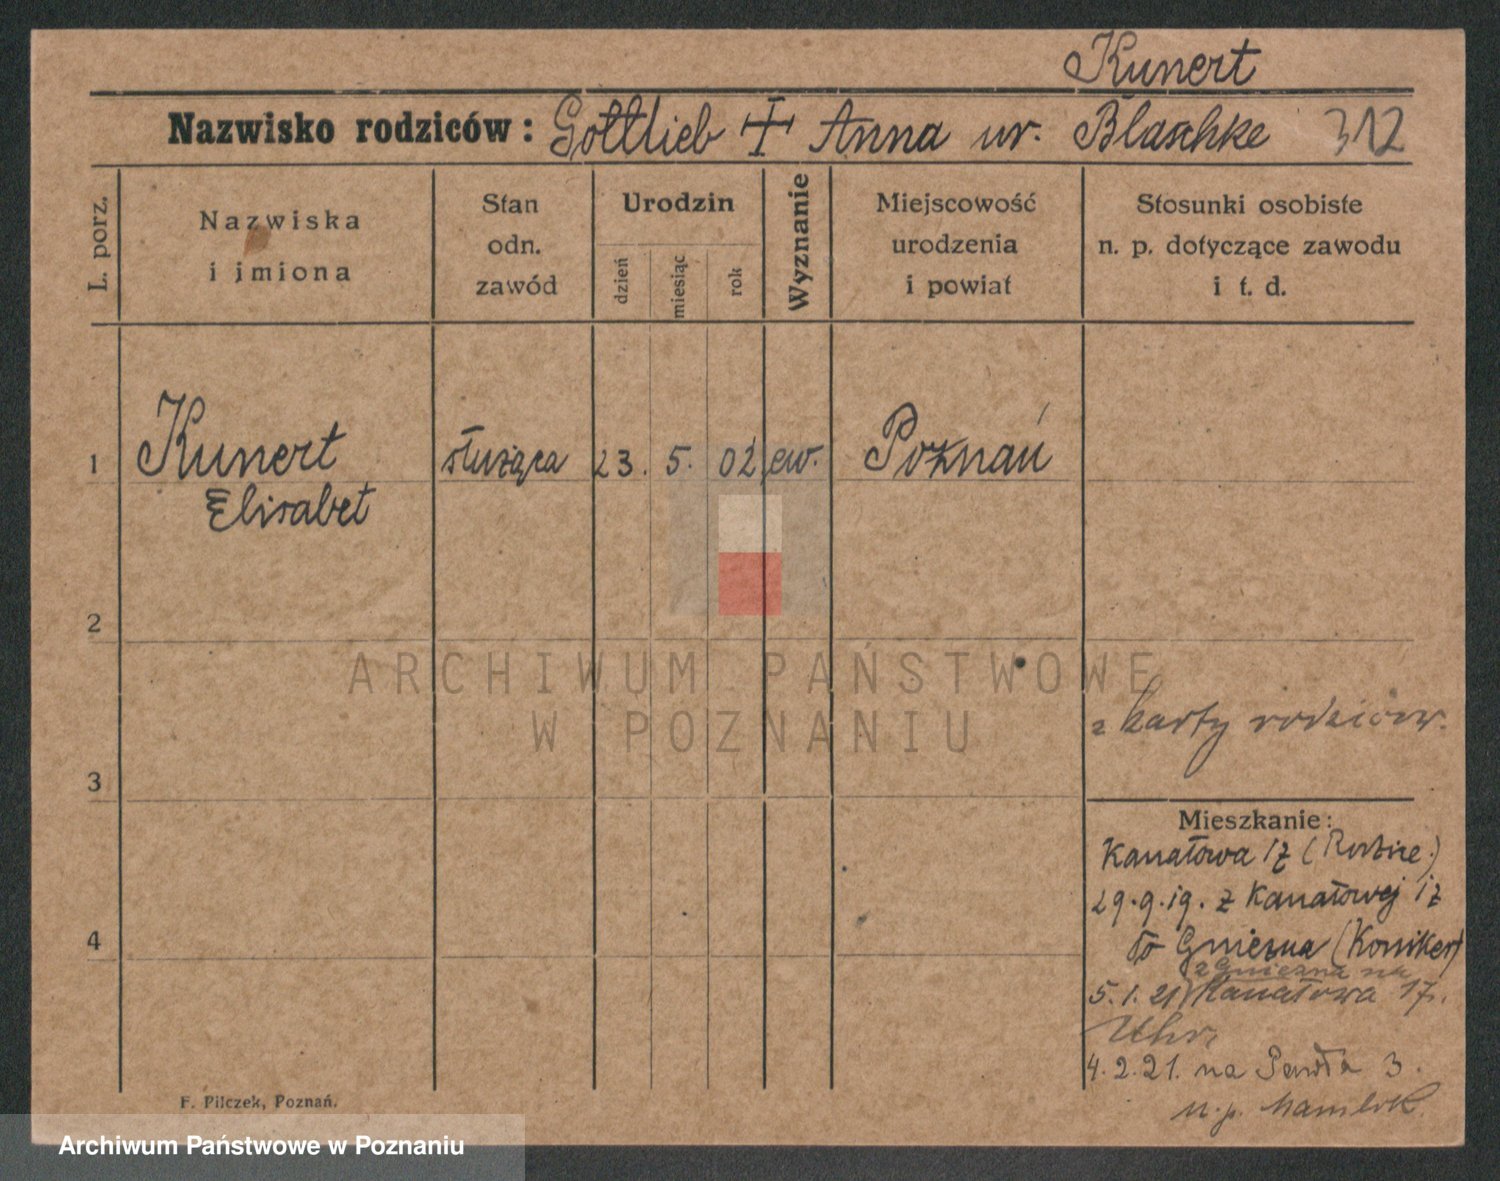 Kunert
Nazwisko rodziców: Gottlieb + Anna ur. Blaschke 312
L. porz.
Nazwiska
i imiona
Stan
odn.
zawód
Urodzin
dzień
miesiąc
rok
Wyznanie
Miejscowość
urodzenia
i powiat
Stosunki osobiste
n. p. dotyczące zawodu
i t. d.
1 Kunert służąca 23. 5. 02 ew. Poznań
Elisabet
2
ARCHIWUM PAŃSTWOWE
W POZNANIU
z karty rodziców.
3
Mieszkanie:
Kanałowa 17
29.9.19. z Kanałowej 17
do Gniezna
z Gniezna na
5.1.21 Kanałowa 17.
4
4.2.21. na Pawła 3.
u. p.
F. Pilczek, Poznań.
Archiwum Państwowe w Poznaniu